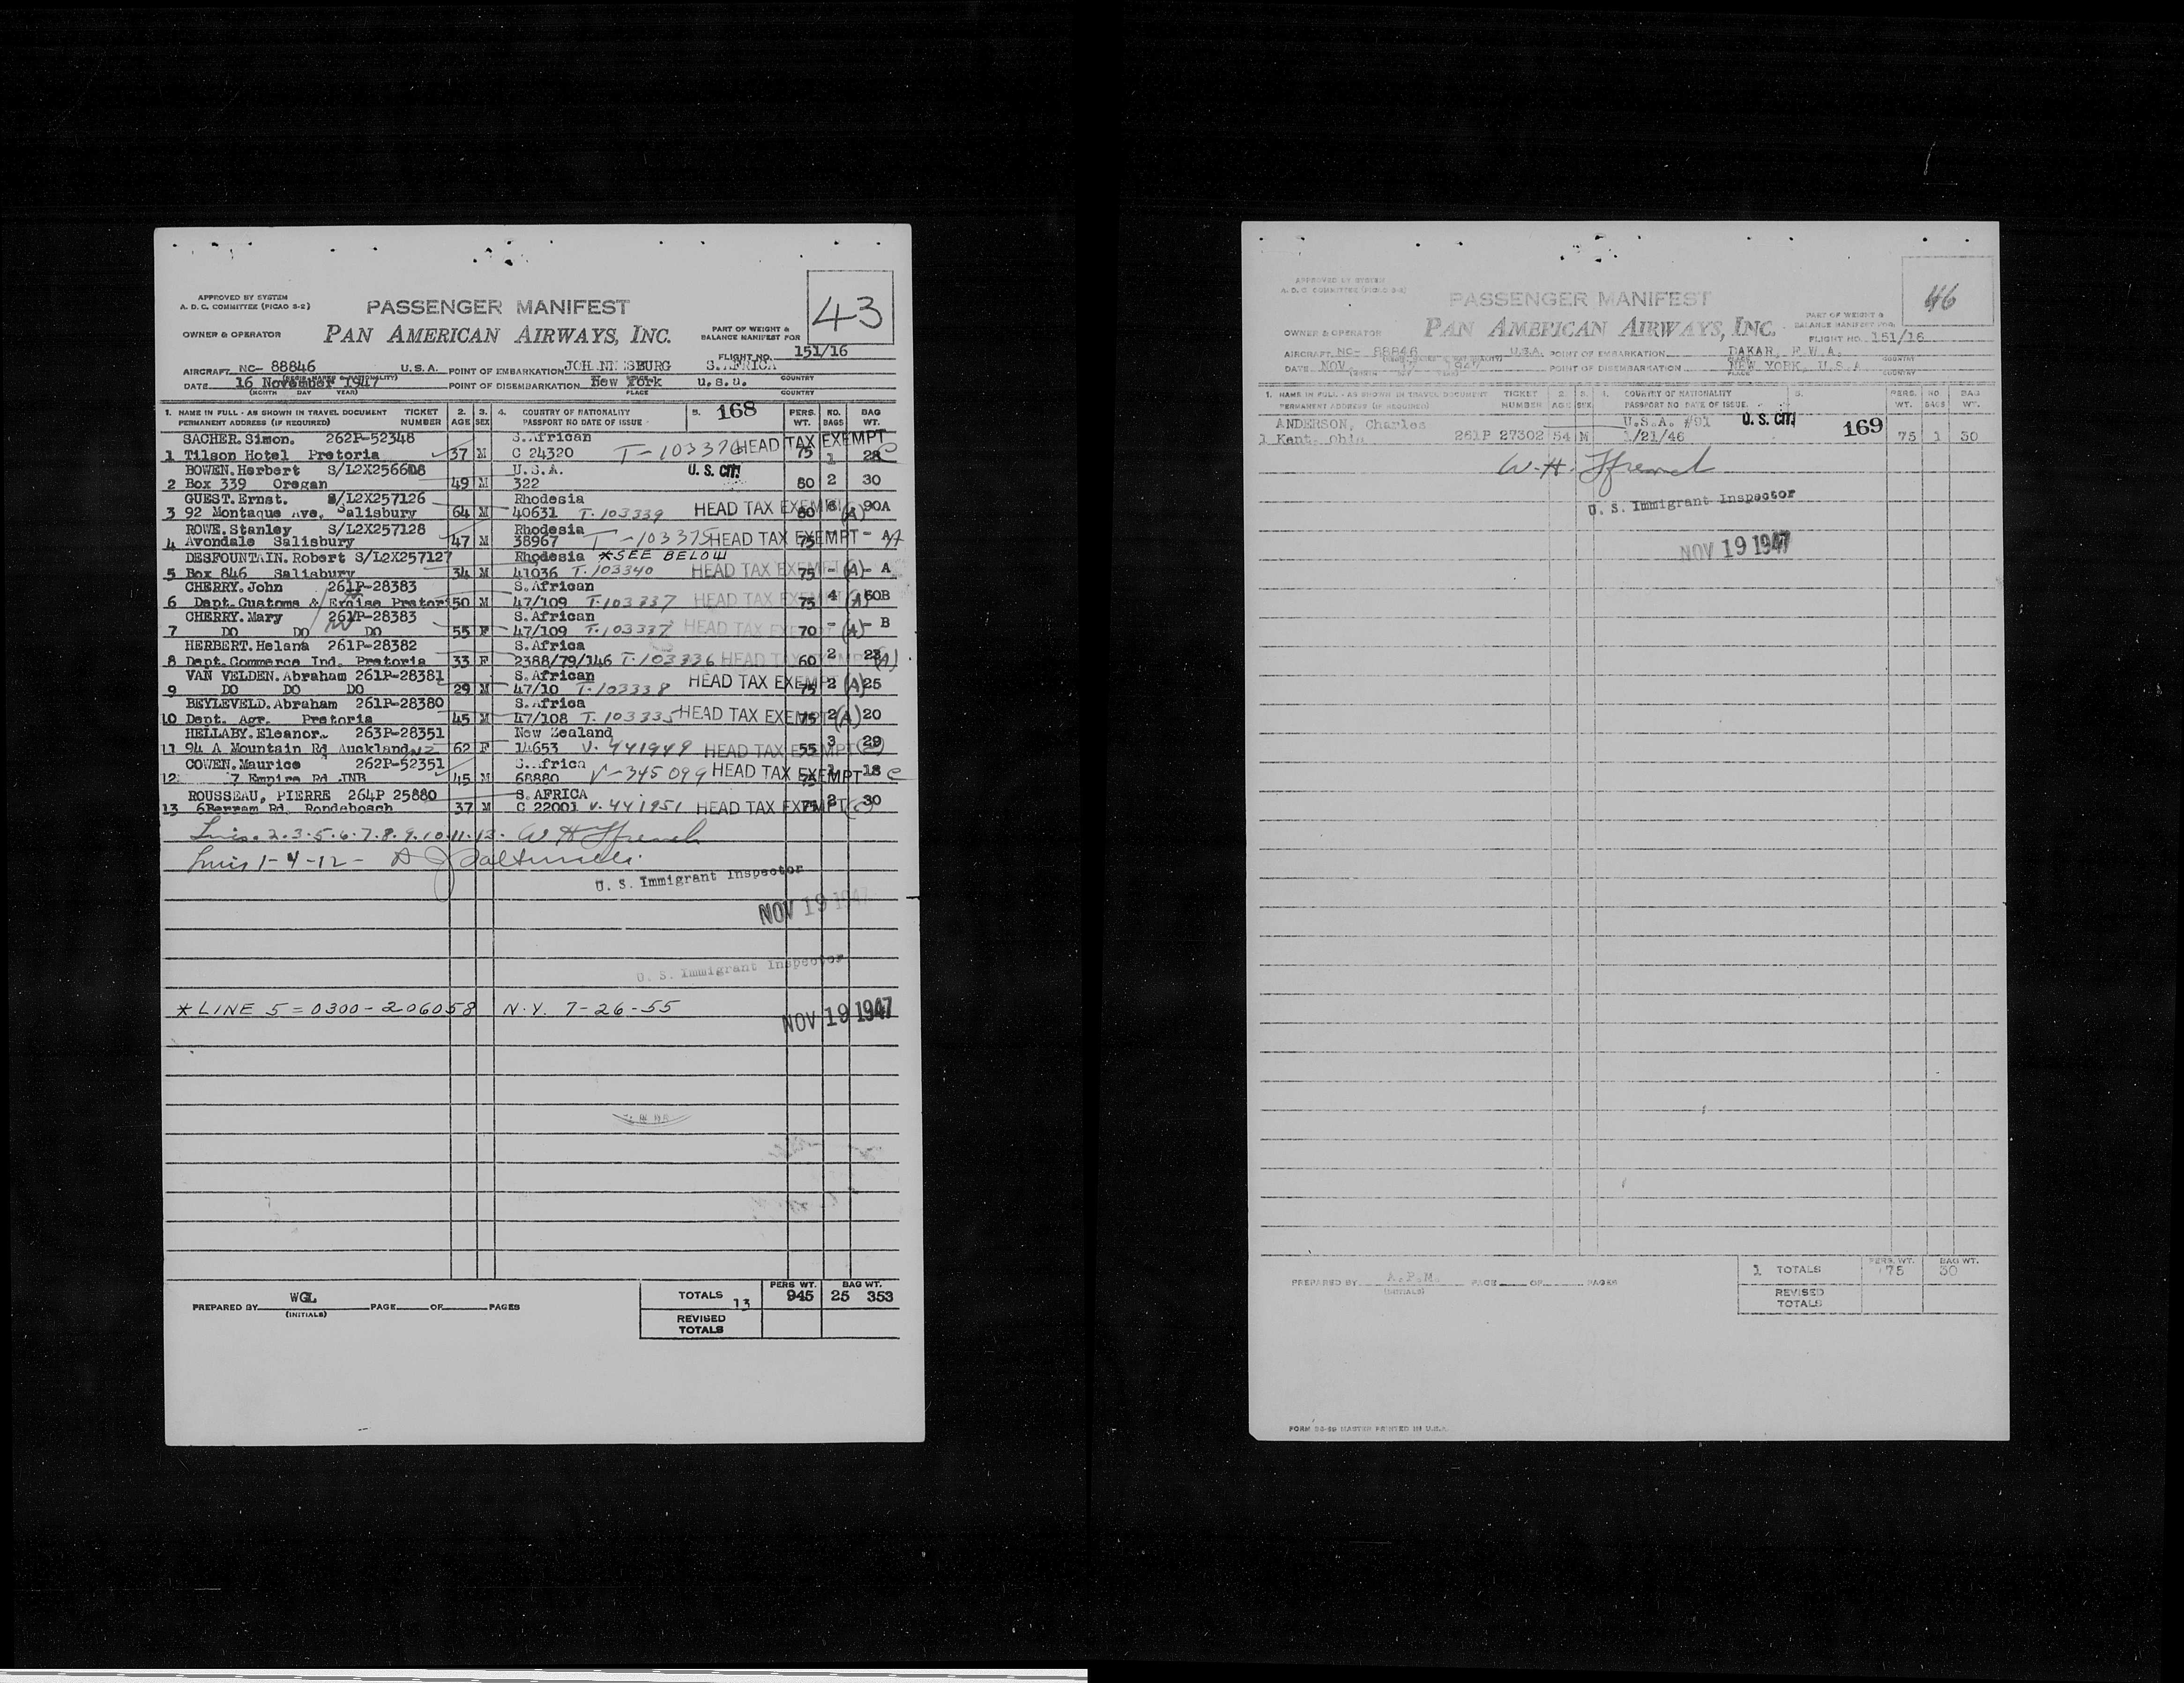 APPROVED BY SYSTEM
A. D. C. COMMITTEE (PICAO S-2)
PASSENGER MANIFEST
43
OWNER & OPERATOR
PAN AMERICAN AIRWAYS, INC.
PART OF WEIGHT &
BALANCE MANIFEST FOR
FLIGHT NO. 151/16
AIRCRAFT NC- 88846 U.S.A. POINT OF EMBARKATION S.AFRICA
DATE 16 November 1947 POINT OF DISEMBARKATION New York
(MONTH DAY YEAR) PLACE COUNTRY
1. NAME IN FULL - AS SHOWN IN TRAVEL DOCUMENT TICKET 2. 3. 4. COUNTRY OF NATIONALITY 5. 168 PERS. NO. BAG
PERMANENT ADDRESS (IF REQUIRED) NUMBER AGE SEX PASSPORT NO DATE OF ISSUE WT. BAGS WT.
SACHER.Simon. 262P-52348 S.African
1 Tilson Hotel Pretoria 37 M C 24320 HEAD TAX EXEMPT 75 1 28
BOWEN.Herbert U.S.A. U.S. CIT.
2 Box 339 Oregan 49 M 322 80 2 30
GUEST.Ernst. S/L2X257126 Rhodesia
3 92 Montaque Ave. Salisbury 64 M 40631 T.103339 HEAD TAX EXEMPT 80 6 (A) 90A
ROWE.Stanley S/L2X257128 Rhodesia
4 Avondale Salisbury 47 M 38967 T-103375 HEAD TAX EXEMPT 75 - A
DESFOUNTAIN.Robert S/L2X257127 Rhodesia *SEE BELOW
5 Box 846 Salisbury 34 M 41036 T.103340 HEAD TAX EXEMPT 75 - (A) - A
CHERRY.John 261P-28383 S.African
6 Dept.Customs & 50 M 47/109 T.103337 HEAD TAX EXEMPT 75 4 (A) 60B
CHERRY.Mary 261P-28383 S.African
7 DO DO DO 55 F 47/109 T.103337 HEAD TAX EXEMPT 70 - (A) - B
HERBERT.Helana 261P-28382 S.Africa
8 Dept.Commerce Ind. Pretoria 33 F 2388/79/146 T.103336 HEAD TAX EXEMPT 60 2 23 (A)
VAN VELDEN.Abraham 261P-28381 S.African
9 DO DO DO 29 M 47/10 T.103338 HEAD TAX EXEMPT 75 2 (A) 25
BEYLEVELD.Abraham 261P-28380 S.Africa
10 Dept. Agr. Pretoria 45 M 47/108 T.103335 HEAD TAX EXEMPT 75 2 (A) 20
HELLABY.Eleanor. 263P-28351 New Zealand
11 94 A Mountain Rd Auckland NZ 62 F 14653 V.441949 HEAD TAX EXEMPT 55 3 29
COWEN.Maurice 262P-52351 S.Africa
12 7 Empire Rd JNB 45 M 68880 V-345099 HEAD TAX EXEMPT 1 18 C
ROUSSEAU, PIERRE 264P 25880 S.AFRICA
13 Rd. Rondebosch 37 M C 22001 V.441951 HEAD TAX EXEMPT 75 2 30
2.3.5.6.7.8.9.10.11.13. W H
1-4-12-
U. S. Immigrant Inspector
NOV 19 1947
U. S. Immigrant Inspector
*LINE 5=0300-206058 N.Y. 7-26-55
NOV 19 1947
PREPARED BY WGL PAGE OF PAGES
(INITIALS)
PERS WT. BAG WT.
TOTALS 13 945 25 353
REVISED
TOTALS
APPROVED BY SYSTEM
PASSENGER MANIFEST
46
OWNER & OPERATOR
PAN AMERICAN AIRWAYS, INC.
PART OF WEIGHT &
BALANCE MANIFEST FOR
FLIGHT NO. 151/16
AIRCRAFT NC- 88846 U.S.A. POINT OF EMBARKATION DAKAR, F.W.A.
DATE NOV. 17 1947 POINT OF DISEMBARKATION NEW YORK, U.S.A
1. NAME IN FULL - AS SHOWN IN TRAVEL DOCUMENT TICKET 2. 3. 4. COUNTRY OF NATIONALITY 5. PERS. NO. BAG
PERMANENT ADDRESS (IF REQUIRED) NUMBER AGE SEX PASSPORT NO DATE OF ISSUE WT. BAGS WT.
ANDERSON, Charles U.S.A. #91 U.S. CIT. 169
1 Kent, Ohio 261P 27302 54 M 1/21/46 75 1 30
W. H.
U. S. Immigrant Inspector
NOV 19 1947
PREPARED BY A.P.M. PAGE OF PAGES
(INITIALS)
PERS. WT. BAG WT.
1 TOTALS 75 30
REVISED
TOTALS